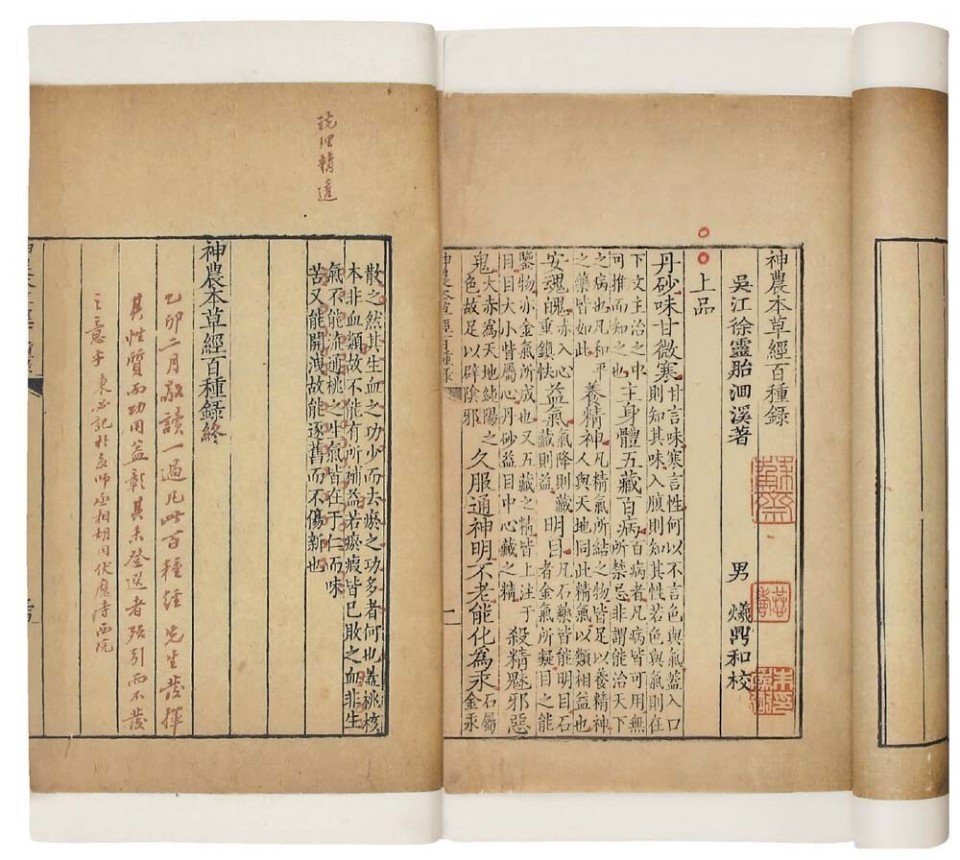 神農本草經百種錄
吳江徐靈胎洄溪著 男 爔鼎和校
上品
丹砂味甘微寒甘言味寒言性何以不言色與氣蓋入口則知其味入腹則知其性若色與氣則在
下文主治之中可推而知之也主身體五藏百病百病者凡病皆可用無所禁忌非謂能治天下
之病也凡和平之藥皆如此養精神凡精氣所結之物皆足以養精神人與天地同此精氣以類相益也
安魂魄赤入心白重鎮怯益氣氣降則藏藏則益明目凡石藥皆能明目石者金氣所凝目之能
鑒物亦金氣所成也又五藏之精皆上注于目目大小眥屬心丹砂益目中心藏之精殺精魅邪惡
鬼大赤為天地純陽之色故足以辟陰邪久服通神明不老能化為汞石屬金汞
二
理精
散之然其生血之功少而去瘀之功多者何也蓋桃核
木非血類故不能有所補益若瘀瘕皆已敗之血非生
氣不能流通桃之生氣皆在于仁而味
苦又能開洩故能逐舊而不傷新也
神農本草經百種錄終
乙卯二月敬讀一過凡此百種經先生發揮
其性質而功用益彰其未登選者殆引而不發
之意乎 記於京師丞相胡同伏魔寺西院